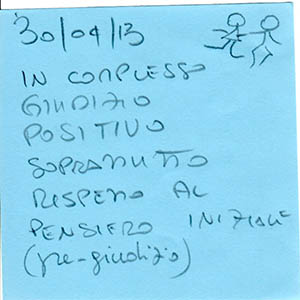 30/04/13
IN COMPLESSO
GIUDIZIO
POSITIVO
SOPRATTUTTO
RISPETTO AL
PENSIERO INIZIALE
(pre-giudizio)